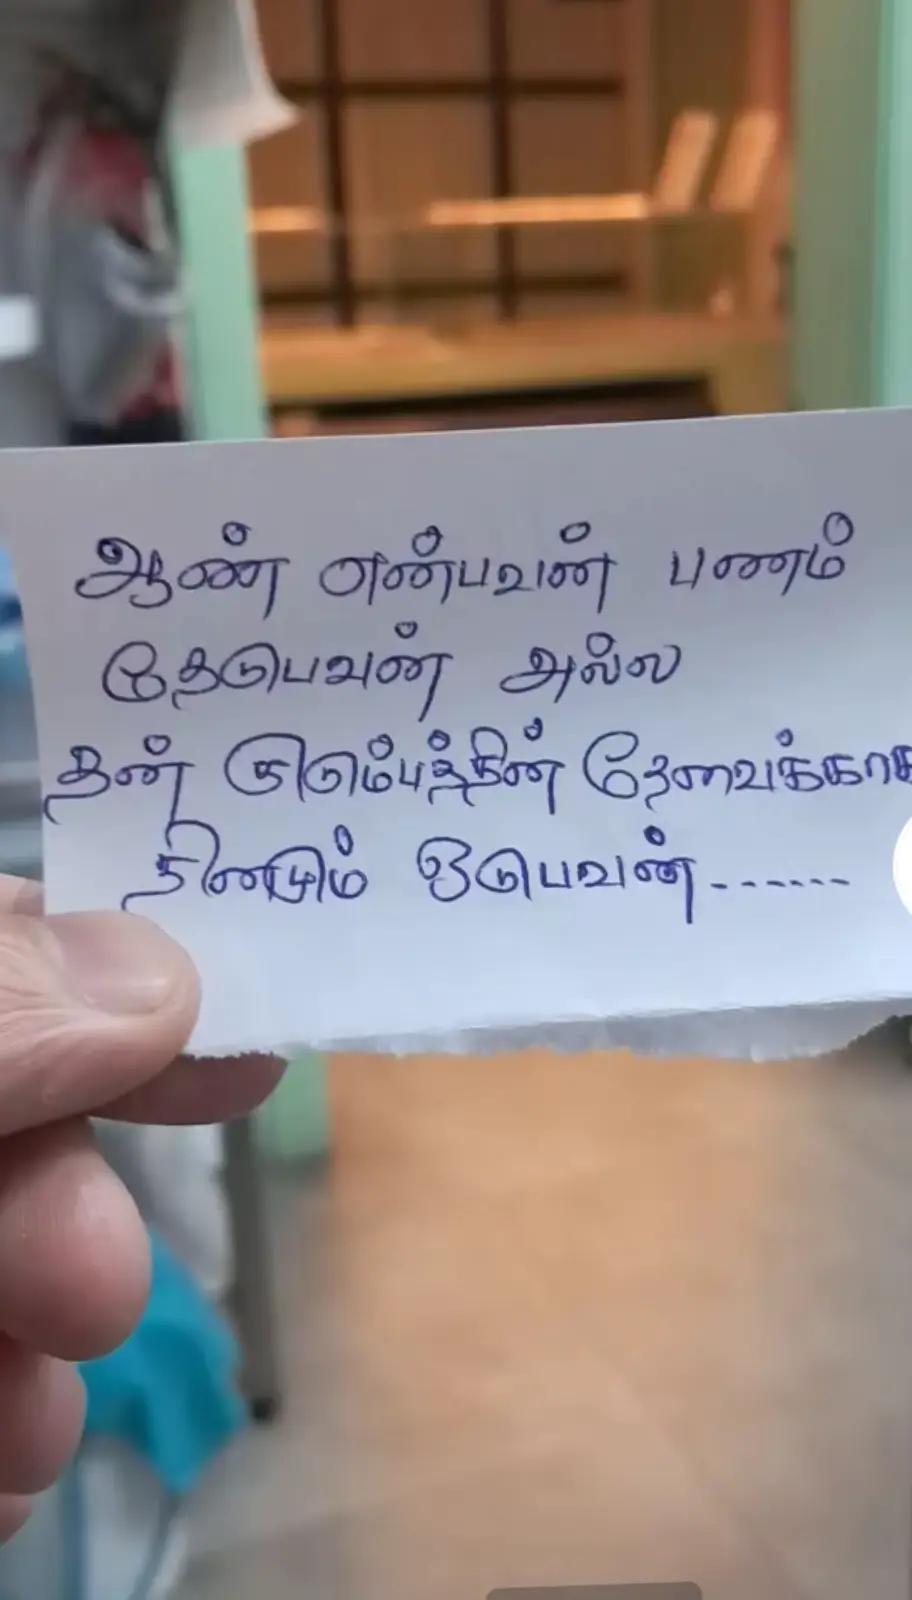 ஆண் என்பவன் பணம்
தேடுபவன் அல்ல
தன் குடும்பத்தின் தேவைக்காக
தினமும் ஓடுபவன்.......